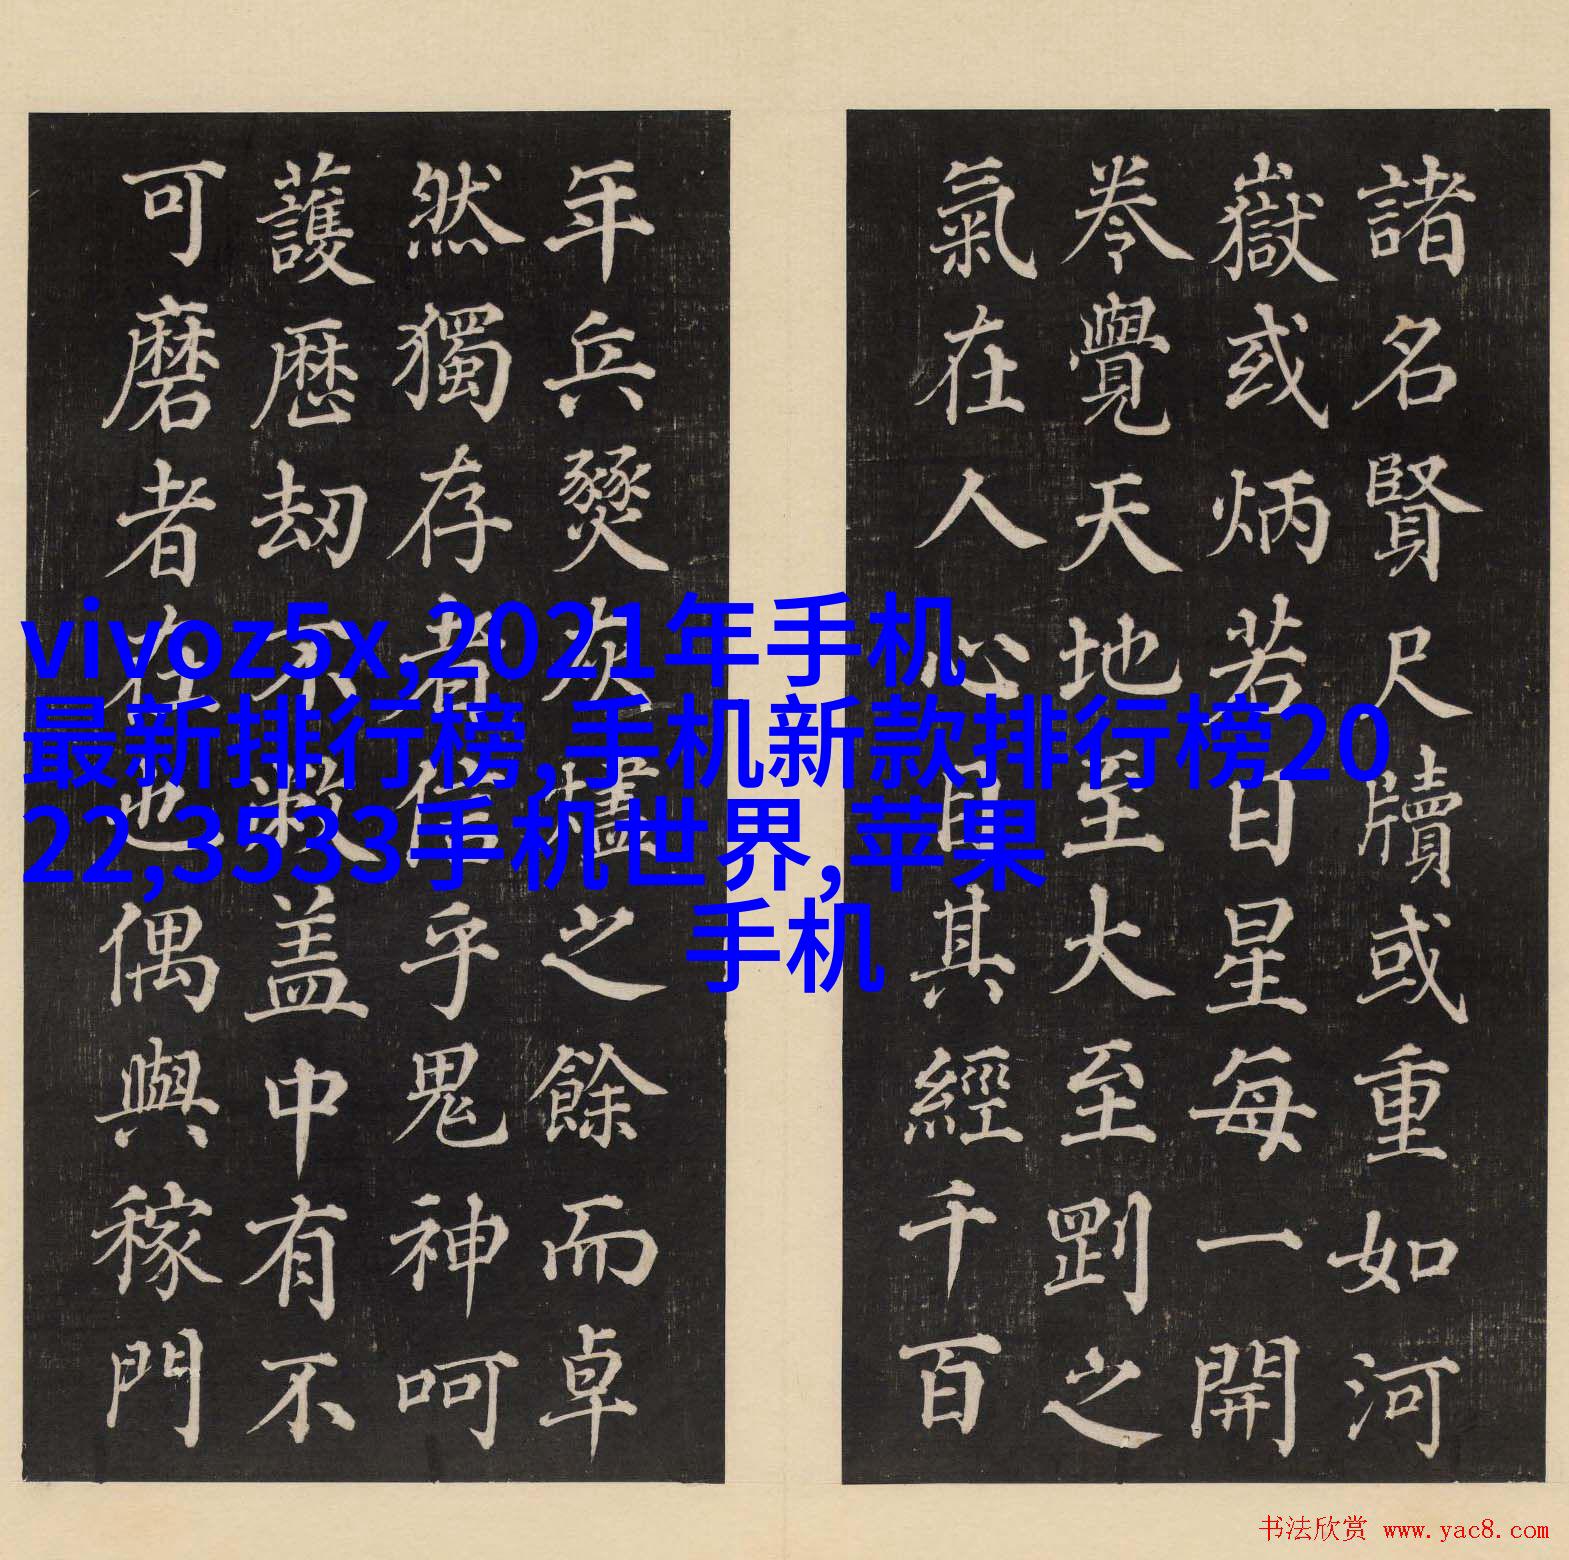 諸名賢尺牘或重如河
嶽或炳若日星每一開
卷覺天地至大至剛之
氣在人心目其經千百
年兵燹灰燼之餘而卓
然獨存者信乎鬼神呵
護歴劫不敝盖中有不
可磨者在也偶與稼門
vivoz5x,2021年手机
最新排行榜,手机新款排行榜20
22,3533手机世界,苹果
手机
书法欣赏 www.yac8.com